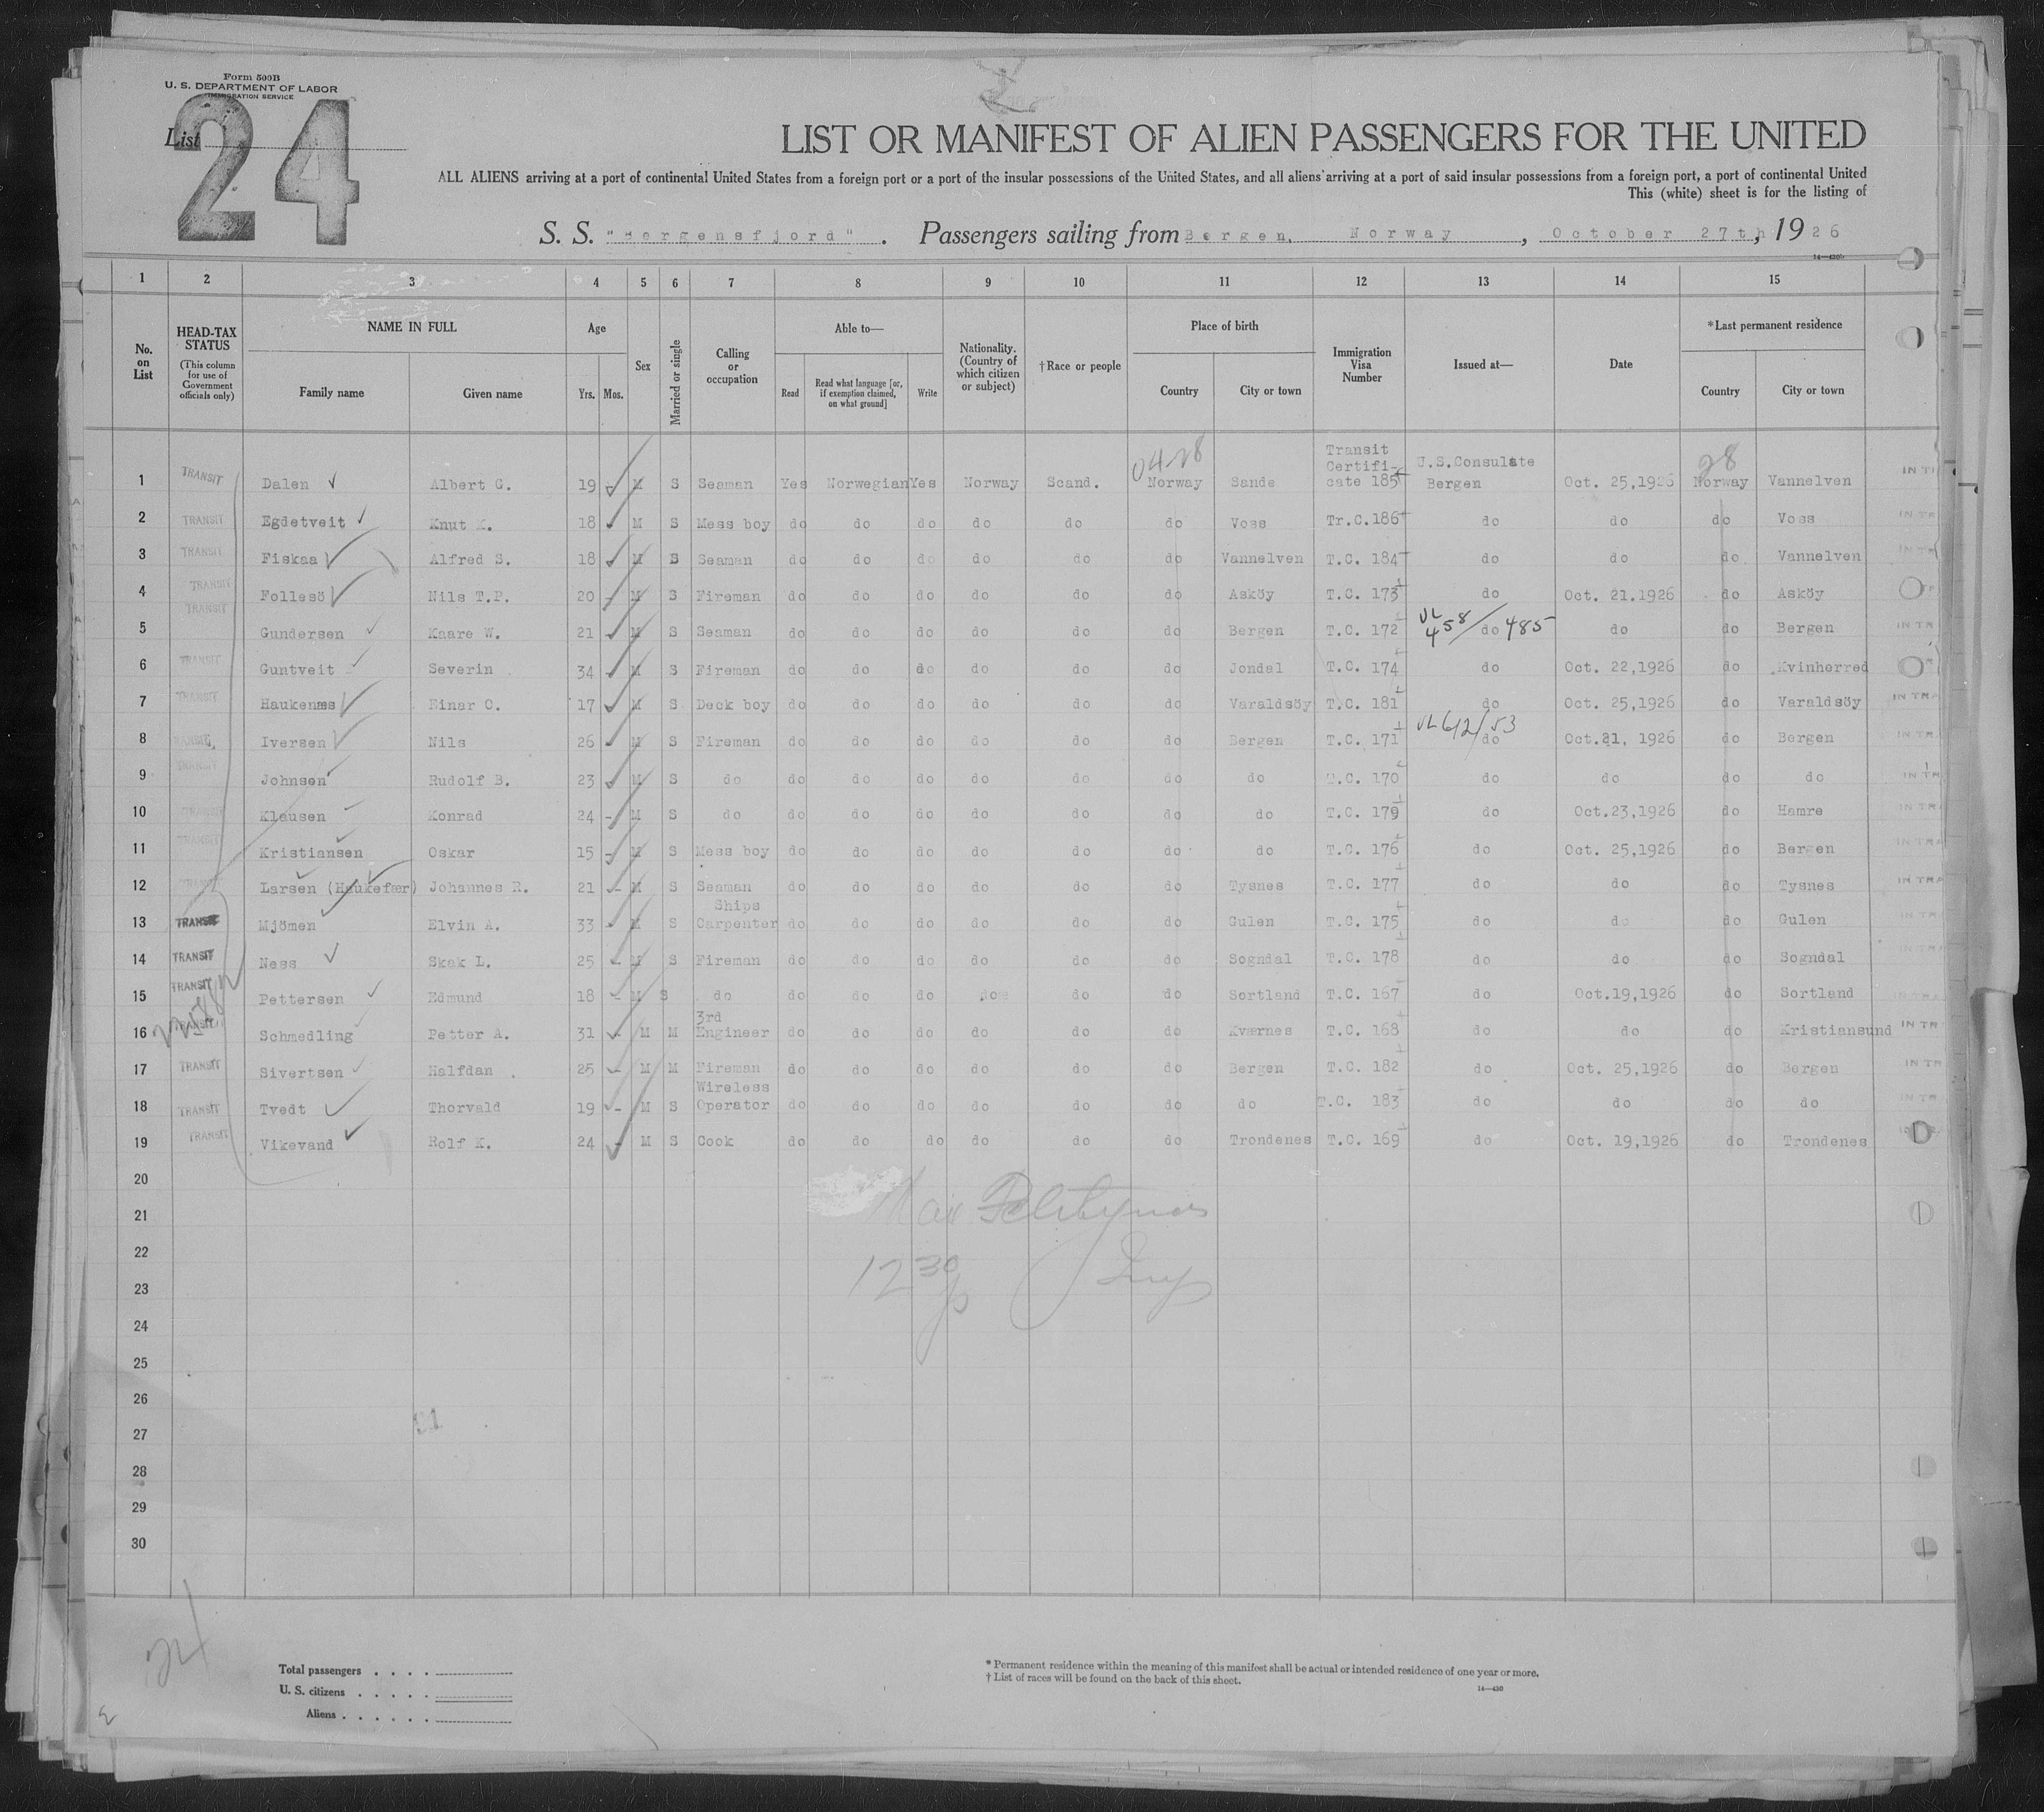 Form 500B
U. S. DEPARTMENT OF LABOR
IMMIGRATION SERVICE
List 24
LIST OR MANIFEST OF ALIEN PASSENGERS FOR THE UNITED
ALL ALIENS arriving at a port of continental United States from a foreign port or a port of the insular possessions of the United States, and all aliens arriving at a port of said insular possessions from a foreign port, a port of continental United
This (white) sheet is for the listing of
S. S. "Bergensfjord". Passengers sailing from Bergen, Norway, October 27th, 1926
14—430
1 2 3 4 5 6 7 8 9 10 11 12 13 14 15
No. on List
HEAD-TAX STATUS (This column for use of Government officials only)
NAME IN FULL Family name Given name
Age Yrs. Mos.
Sex
Married or single
Calling or occupation
Able to— Read Read what language [or, if exemption claimed, on what ground] Write
Nationality. (Country of which citizen or subject)
†Race or people
Place of birth Country City or town
Immigration Visa Number
Issued at—
Date
*Last permanent residence Country City or town
04-28 28
1 TRANSIT Dalen Albert G. 19 - M S Seaman Yes Norwegian Yes Norway Scand. Norway Sande Transit Certificate 185 U.S.Consulate Bergen Oct. 25,1926 Norway Vannelven IN T
2 TRANSIT Egdetveit Knut K. 18 M S Mess boy do do do do do do Voss Tr.C.186 do do do Voss IN TR
3 TRANSIT Fiskaa Alfred S. 18 M S Seaman do do do do do do Vannelven T.C. 184 do do do Vannelven IN TR
4 TRANSIT Follesö Nils T.P. 20 - M S Fireman do do do do do do Asköy T.C. 173 do Oct. 21.1926 do Asköy
5 TRANSIT Gundersen Kaare W. 21 M S Seaman do do do do do do Bergen T.C. 172 VL 458/485 do do do Bergen IN TR
6 TRANSIT Guntveit Severin 34 M S Fireman do do do do do do Jondal T.C. 174 do Oct. 22,1926 do Kvinherred
7 TRANSIT Haukenæs Einar O. 17 M S Deck boy do do do do do do Varaldsöy T.C. 181 do Oct. 25,1926 do Varaldsöy IN TRA
8 TRANSIT Iversen Nils 26 M S Fireman do do do do do do Bergen T.C. 171 VL 612/53 do Oct.21, 1926 do Bergen IN TR
9 TRANSIT Johnsen Rudolf B. 23 M S do do do do do do do do T.C. 170 do do do do IN TR
10 TRANSIT Klausen Konrad 24 - M S do do do do do do do do T.C. 179 do Oct.23,1926 do Hamre IN TR
11 TRANSIT Kristiansen Oskar 15 - M S Mess boy do do do do do do do T.C. 176 do Oct. 25,1926 do Bergen IN TR
12 TRANSIT Larsen (Haukefær) Johannes R. 21 - M S Seaman do do do do do do Tysnes T.C. 177 do do do Tysnes IN TRA
13 TRANSIT Mjömen Elvin A. 33 - M S Ships Carpenter do do do do do do Gulen T.C. 175 do do do Gulen IN TR
14 TRANSIT Ness Skak L. 25 - M S Fireman do do do do do do Sogndal T.C. 178 do do do Sogndal IN TR
15 TRANSIT Pettersen Edmund 18 - M S do do do do do do do Sortland T.C. 167 do Oct.19,1926 do Sortland IN TR
16 TRANSIT Schmedling Petter A. 31 - M M 3rd Engineer do do do do do do Kværnes T.C. 168 do do do Kristiansund IN TR
17 TRANSIT Sivertsen Halfdan 25 - M M Fireman do do do do do do Bergen T.C. 182 do Oct. 25,1926 do Bergen IN TR
18 TRANSIT Tvedt Thorvald 19 - M S Wireless Operator do do do do do do do T.C. 183 do do do do IN TR
19 TRANSIT Vikevand Rolf K. 24 - M S Cook do do do do do do Trondenes T.C. 169 do Oct. 19,1926 do Trondenes
20
21
22
12 30
23
24
25
26
27
28
29
30
24
Total passengers
U. S. citizens
Aliens
* Permanent residence within the meaning of this manifest shall be actual or intended residence of one year or more.
† List of races will be found on the back of this sheet.
14—430